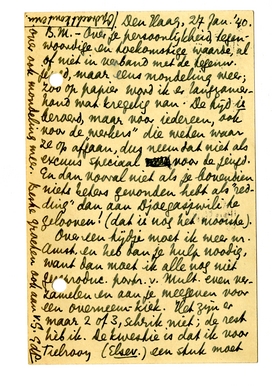 Den Haag, 27 Jan. '40.
B.M. - Over je persoonlijkheid tegen-
woordige en toekomstige waarde, al
of niet in verband met de tegenw.
jeugd, maar eens mondeling meer;
zoo op papier word ik langzamer-
hand wat kregelig van. De tijd is
beroerd, maar voor iedereen, ook
voor de "merkers" die weten waar
ze op afgaan, dus neem dat niet als
excuus speciaal voor de jeugd.
En dan vooral niet als je bovendien
niets beters gevonden hebt als "red-
ding" dan aan Djoegasjwili te
gelooven! (dat is nog het mooiste).
Over een tijdje moet ik weer nr.
Amst. en heb dan je hulp noodig,
want dan moet ik alle nog niet
gereproduc. portr. v. Mult. even ver-
zamelen en aan je meegeven voor
een overneem-kiek. Het zijn er
maar 2 of 3, schrik niet; de rest
heb ik. De kwestie is dat ik voor
Teelrooy (Elsev.) een stuk moet
over ook mondeling meer. Beste groeten ook aan v.G. EdP.